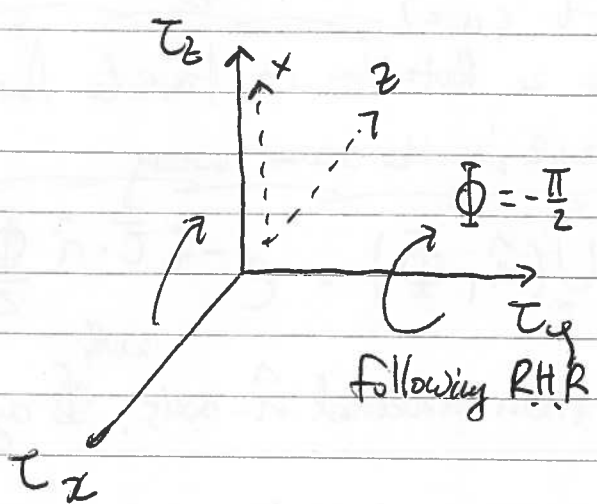 τ_z
x
z
Φ = -π/2
τ_y
following R.H.R
τ_x